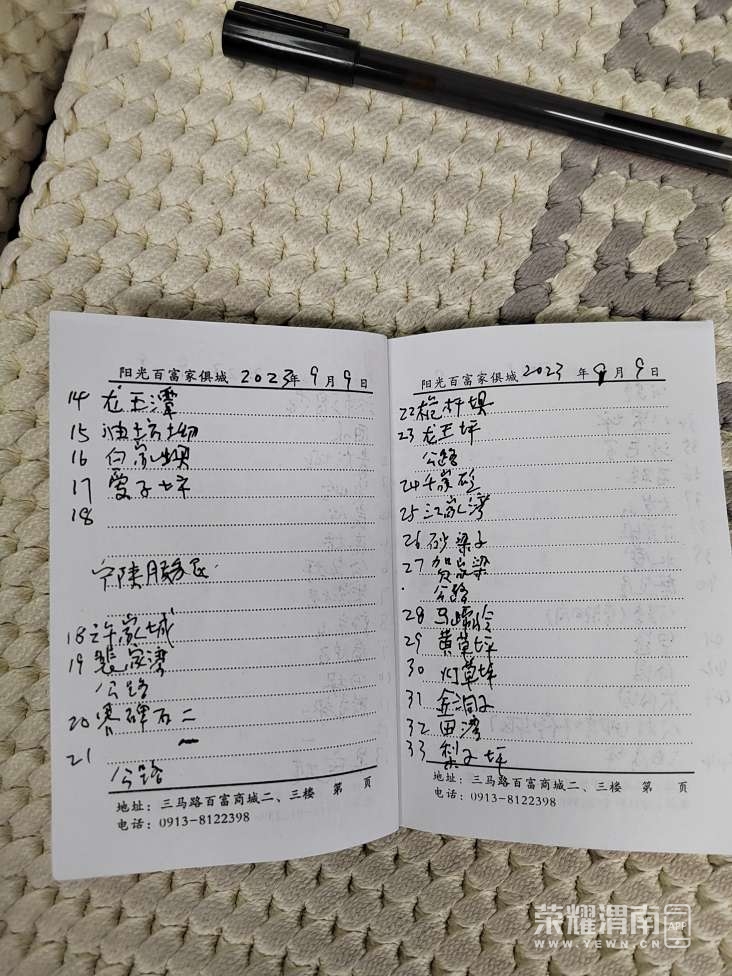 阳光百富家俱城 2023年9月9日
14 龙王潭
15
16 白家坝
17 雯子坪
18
宁陕服务区
18 许家城
19 裴家湾
公路
20 寨碑石二
21 一
公路
地址：三马路百富商城二、三楼 第 页
电话：0913-8122398
阳光百富家俱城 2023 年9月9日
22 桅杆坝
23 龙王坪
公路
24
25 江家湾
26 砂梁子
27 贺家梁
公路
28
29 黄草坪
30 灯草坪
31 金洞子
32 田湾
33 梨子坪
地址：三马路百富商城二、三楼 第 页
电话：0913-8122398
荣耀渭南 APP
WWW.YEWN.CN